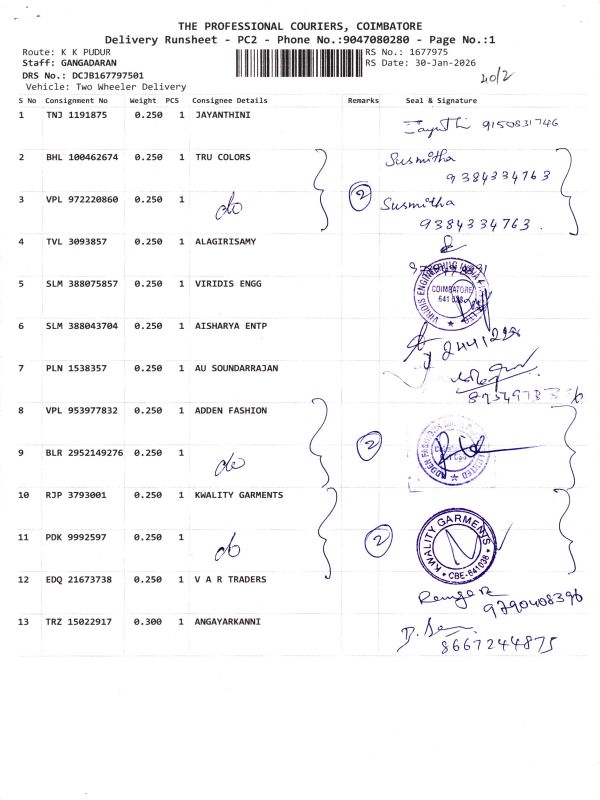 THE PROFESSIONAL COURIERS, COIMBATORE
Delivery Runsheet - PC2 - Phone No.:9047080280 - Page No.:1
Route: K K PUDUR RS No.: 1677975
Staff: GANGADARAN RS Date: 30-Jan-2026
DRS No.: DCJB167797501
Vehicle: Two Wheeler Delivery
S No Consignment No Weight PCS Consignee Details Remarks Seal & Signature
1 TNJ 1191875 0.250 1 JAYANTHINI 9150831746
2 BHL 100462674 0.250 1 TRU COLORS Susmitha
9384334763
3 VPL 972220860 0.250 1 do 2 Susmitha
9384334763.
4 TVL 3093857 0.250 1 ALAGIRISAMY
5 SLM 388075857 0.250 1 VIRIDIS ENGG COIMBATORE
641 038
6 SLM 388043704 0.250 1 AISHARYA ENTP
7 PLN 1538357 0.250 1 AU SOUNDARRAJAN
8 VPL 953977832 0.250 1 ADDEN FASHION 2
9 BLR 2952149276 0.250 1 do
10 RJP 3793001 0.250 1 KWALITY GARMENTS
11 PDK 9992597 0.250 1 do 2 KWALITY GARMENTS
CBE-641038
12 EDQ 21673738 0.250 1 V A R TRADERS
9790408396
13 TRZ 15022917 0.300 1 ANGAYARKANNI
8667244875